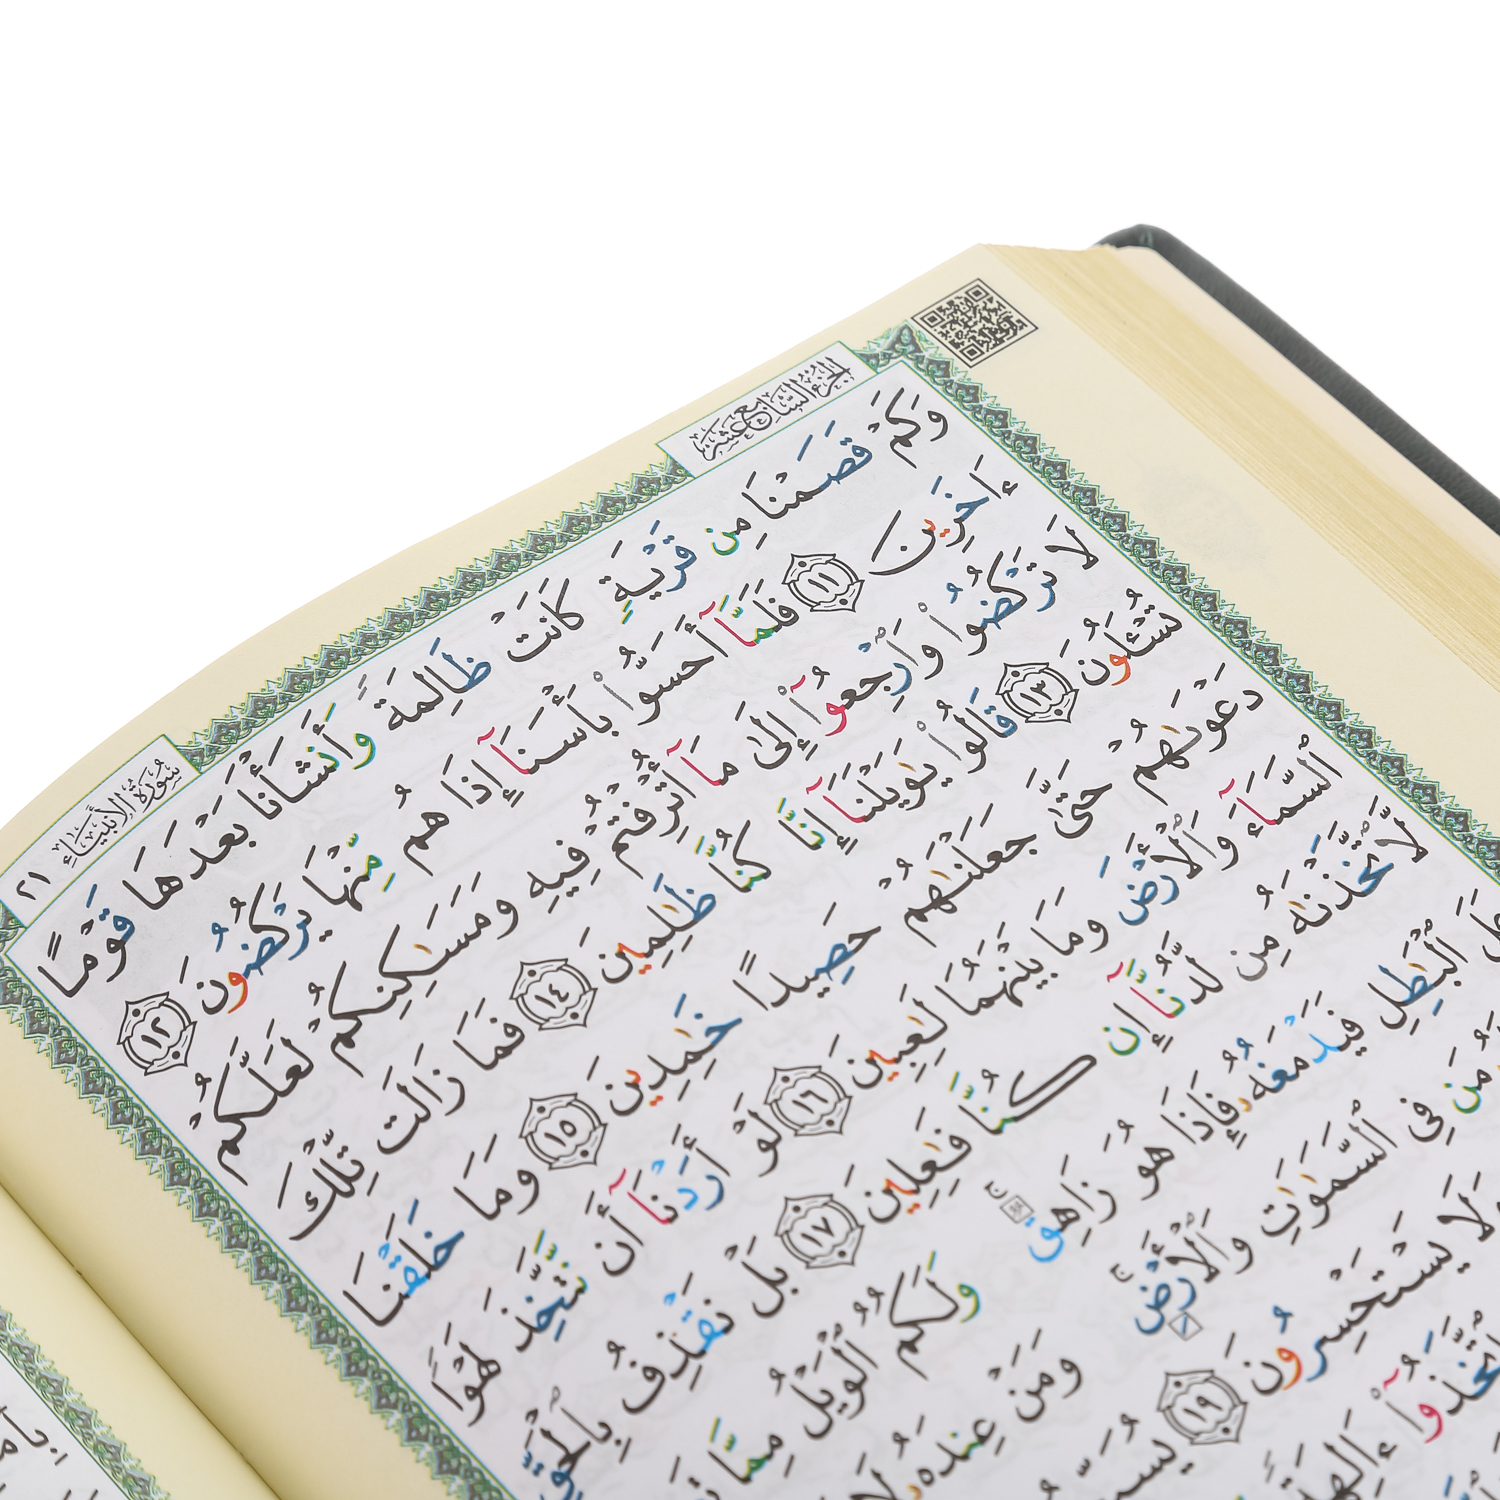 سُورَةُ الأَنبِيَاءِ ٢١
الجُزْءُ السَّابِعَ عَشَرَ
وَكَمْ قَصَمْنَا مِن قَرْيَةٍ كَانَتْ ظَالِمَةً وَأَنشَأْنَا بَعْدَهَا قَوْمًا
ءَاخَرِينَ ١١ فَلَمَّآ أَحَسُّوا۟ بَأْسَنَآ إِذَا هُم مِّنْهَا يَرْكُضُونَ ١٢
لَا تَرْكُضُوا۟ وَٱرْجِعُوٓا۟ إِلَىٰ مَآ أُتْرِفْتُمْ فِيهِ وَمَسَـٰكِنِكُمْ لَعَلَّكُمْ
تُسْـَٔلُونَ ١٣ قَالُوا۟ يَـٰوَيْلَنَآ إِنَّا كُنَّا ظَـٰلِمِينَ ١٤ فَمَا زَالَت تِّلْكَ
دَعْوَىٰهُمْ حَتَّىٰ جَعَلْنَـٰهُمْ حَصِيدًا خَـٰمِدِينَ ١٥ وَمَا خَلَقْنَا
ٱلسَّمَآءَ وَٱلْأَرْضَ وَمَا بَيْنَهُمَا لَـٰعِبِينَ ١٦ لَوْ أَرَدْنَآ أَن نَّتَّخِذَ لَهْوًا
لَّٱتَّخَذْنَـٰهُ مِن لَّدُنَّآ إِن كُنَّا فَـٰعِلِينَ ١٧ بَلْ نَقْذِفُ بِٱلْحَقِّ
ٱلْبَـٰطِلِ فَيَدْمَغُهُۥ فَإِذَا هُوَ زَاهِقٌ وَلَكُمُ ٱلْوَيْلُ مِمَّا
مَن فِى ٱلسَّمَـٰوَٰتِ وَٱلْأَرْضِ وَمَنْ عِندَهُۥ لَا
وَلَا يَسْتَحْسِرُونَ ١٩
ٱتَّخَذُوٓا۟ ءَالِهَةً